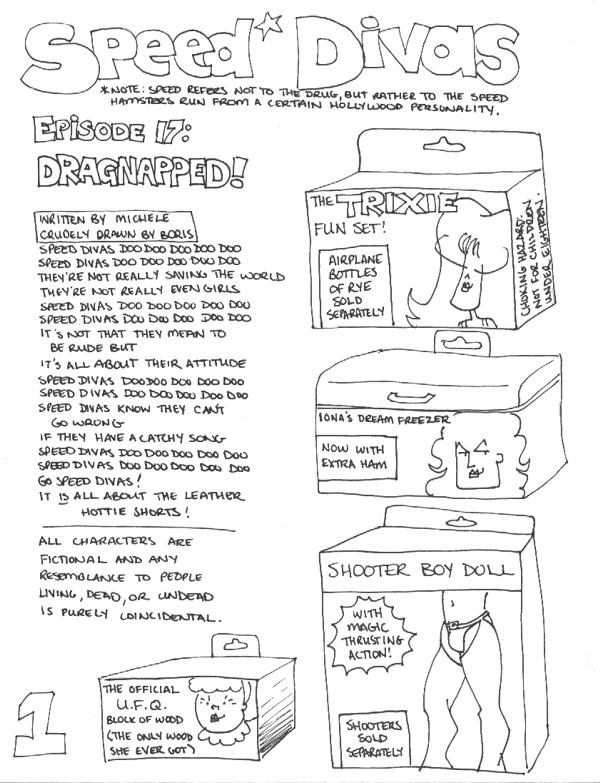 Speed* Divas
*NOTE: SPEED REFERS NOT TO THE DRUG, BUT RATHER TO THE SPEED
HAMSTERS RUN FROM A CERTAIN HOLLYWOOD PERSONALITY.
EPISODE 17:
DRAGNAPPED!
WRITTEN BY MICHELE
CRUDELY DRAWN BY BORIS
SPEED DIVAS DOO DOO DOO DOO DOO
SPEED DIVAS DOO DOO DOO DOO DOO
THEY'RE NOT REALLY SAVING THE WORLD
THEY'RE NOT REALLY EVEN GIRLS
SPEED DIVAS DOO DOO DOO DOO DOO
SPEED DIVAS DOO DOO DOO DOO DOO
IT'S NOT THAT THEY MEAN TO
BE RUDE BUT
IT'S ALL ABOUT THEIR ATTITUDE
SPEED DIVAS DOO DOO DOO DOO DOO
SPEED DIVAS DOO DOO DOO DOO DOO
SPEED DIVAS KNOW THEY CAN'T
GO WRONG
IF THEY HAVE A CATCHY SONG
SPEED DIVAS DOO DOO DOO DOO DOO
SPEED DIVAS DOO DOO DOO DOO DOO
GO SPEED DIVAS!
IT IS ALL ABOUT THE LEATHER
HOTTIE SHORTS!
ALL CHARACTERS ARE
FICTIONAL AND ANY
RESEMBLANCE TO PEOPLE
LIVING, DEAD, OR UNDEAD
IS PURELY COINCIDENTAL.
THE TRIXIE
FUN SET!
AIRPLANE
BOTTLES
OF RYE
SOLD
SEPARATELY
CHOKING HAZARD.
NOT FOR CHILDREN
UNDER EIGHTEEN.
IONA'S DREAM FREEZER
NOW WITH
EXTRA HAM
SHOOTER BOY DOLL
WITH
MAGIC
THRUSTING
ACTION!
SHOOTERS
SOLD
SEPARATELY
THE OFFICIAL
U.F.Q.
BLOCK OF WOOD
(THE ONLY WOOD
SHE EVER GOT)
1